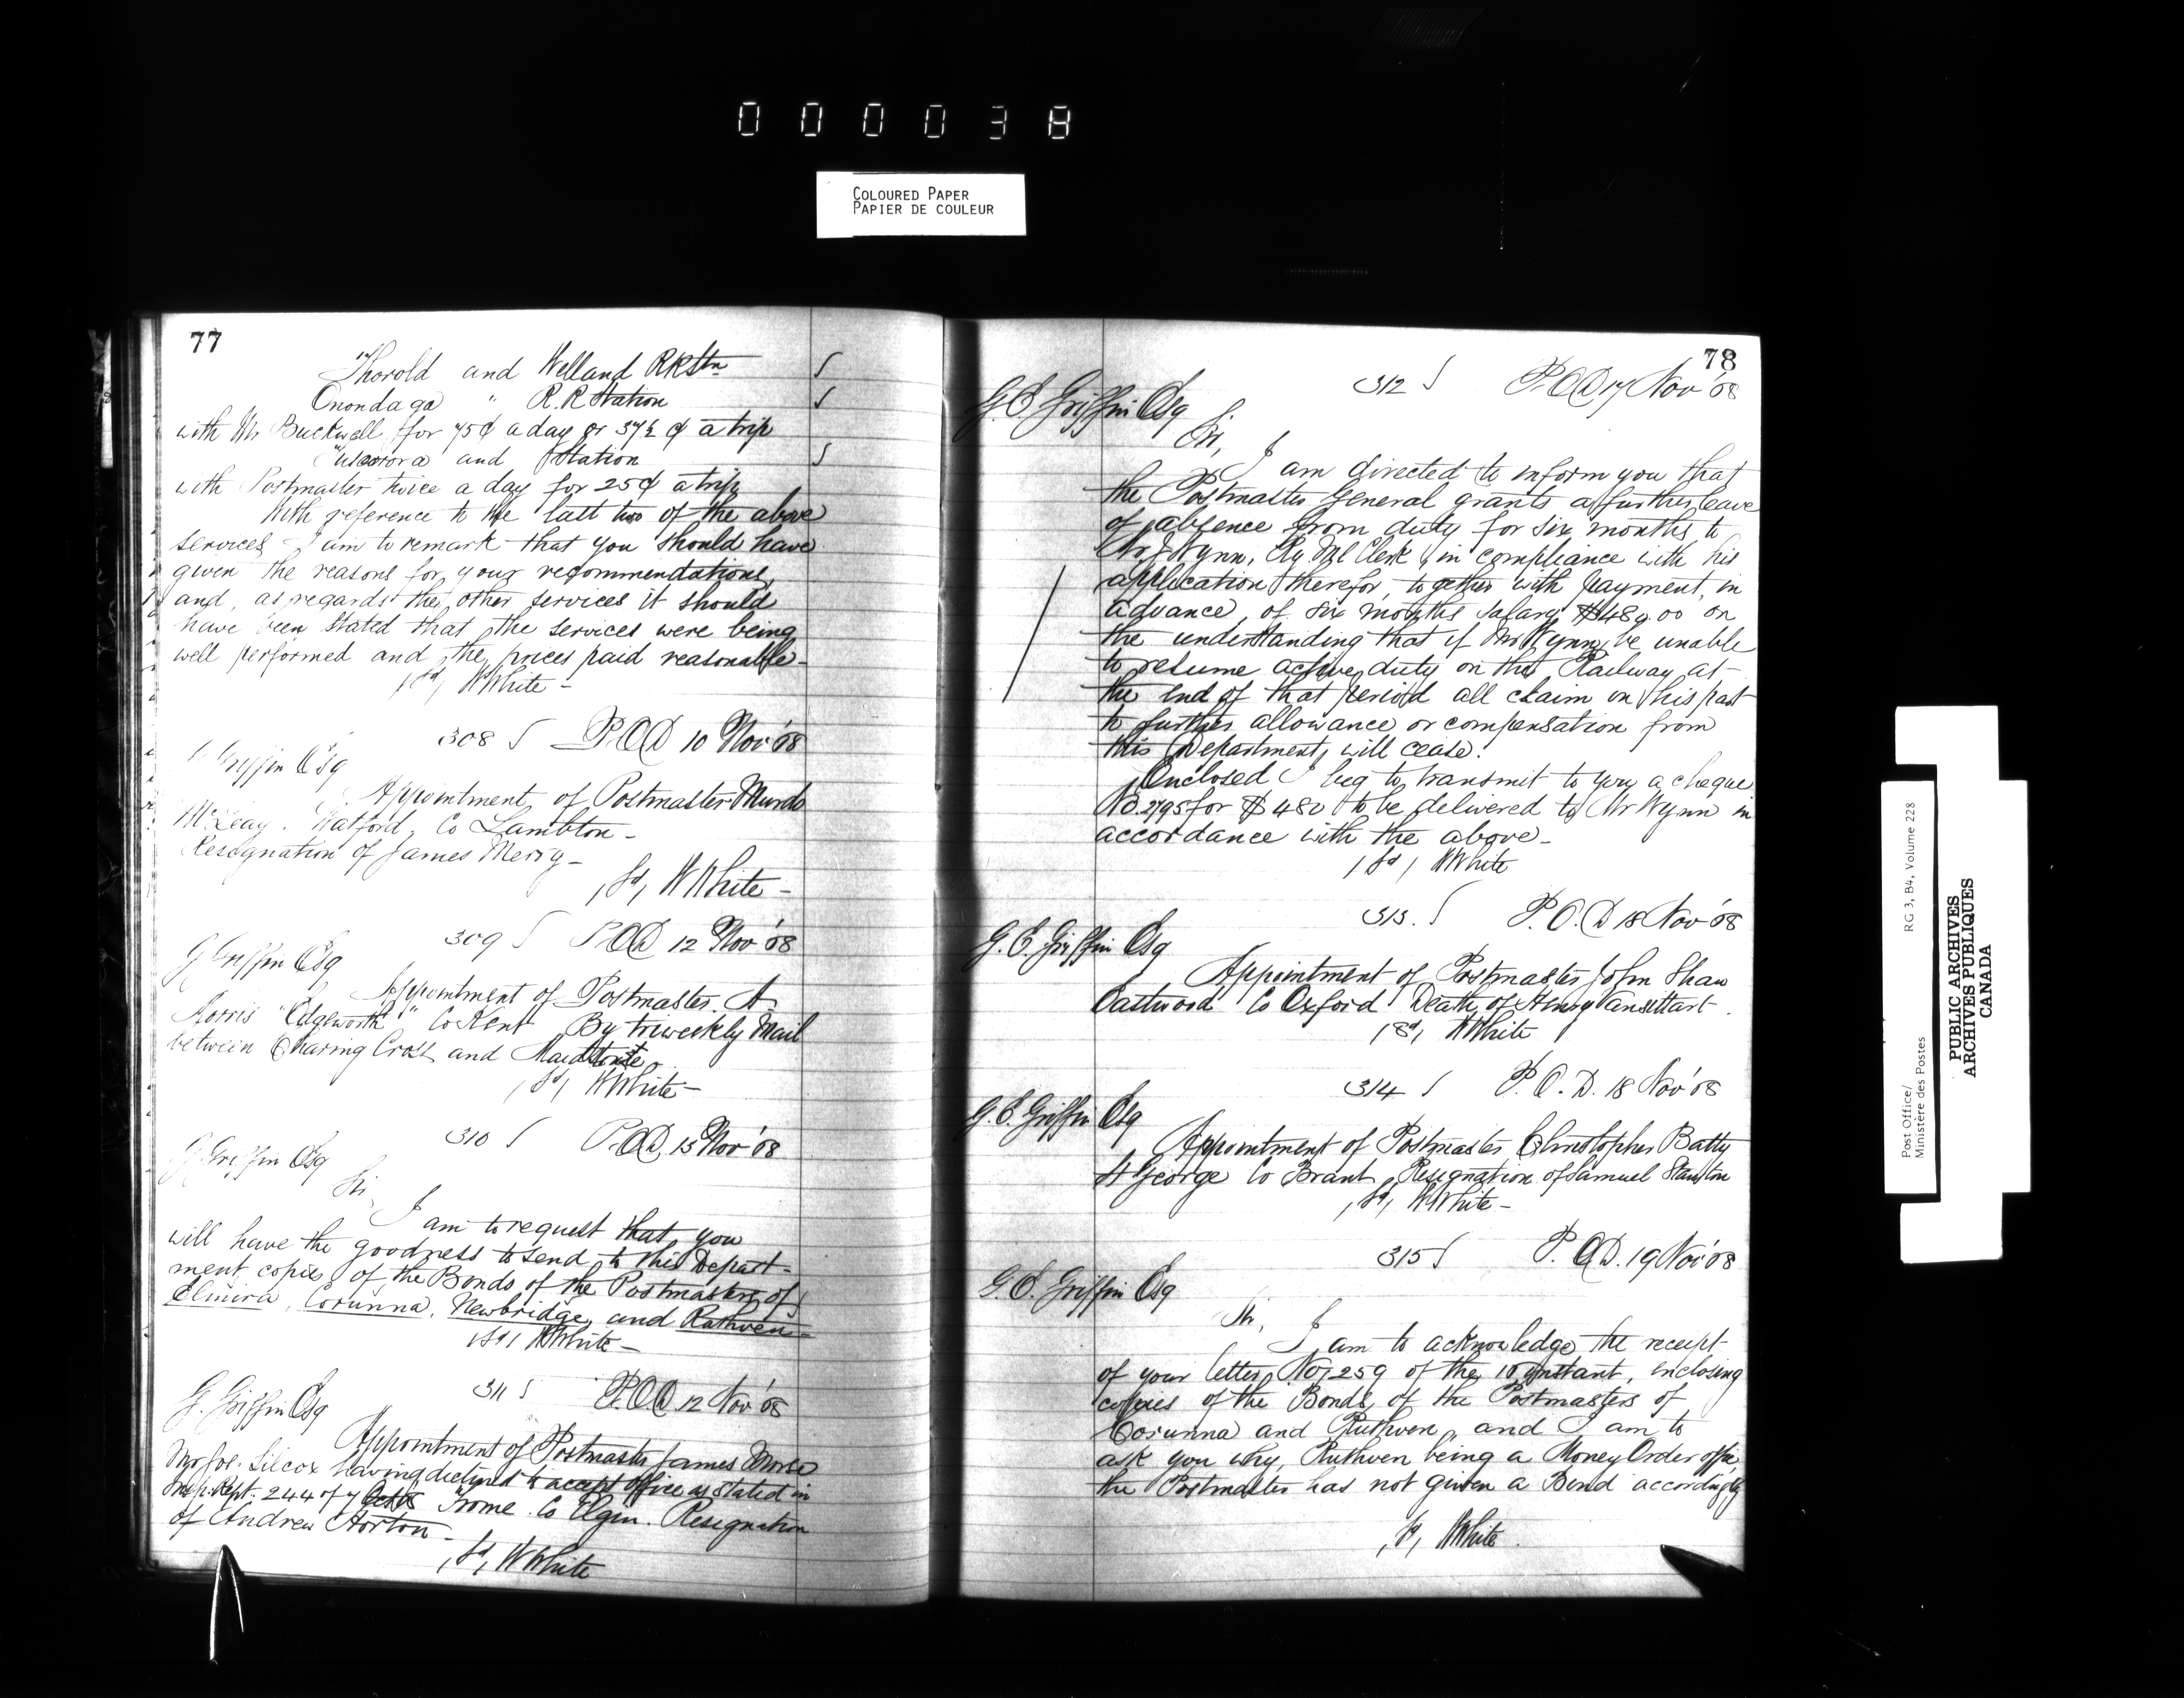 000038
COLOURED PAPER
PAPIER DE COULEUR
77
Thorold and Welland RRStn
Onondaga " R.R Station
with Mr Buckwell for 75¢ a day or 37½ ¢ a trip
Tuscarora and Station
with Postmaster twice a day for 25¢ a trip
With reference to the last two of the above
services I am to remark that you should have
given the reasons for your recommendations,
and, as regards the other services it should
have been stated that the services were being
well performed and the prices paid reasonable-
/Sd/ WWhite-
308 P.O.D 10 Nov '08
Griffin Esq
Appointment of Postmaster Murdo
McLeay. Watford, Co Lambton-
Resignation of James Merry-
/Sd/ WWhite-
309 P.O.D 12 Nov '08
G Griffin Esq
Appointment of Postmaster. A.
Morris "Edgeworth" Co Kent By triweekly Mail
between Charing Cross and Maidstone.
/Sd/ WWhite-
310 P.O.D 13 Nov '08
G Griffin Esq
Sir,
I am to request that you
will have the goodness to send to this Depart-
ment copies of the Bonds of the Postmasters of
Elmira, Corunna, Newbridge, and Ruthven-
/Sd/ WWhite-
311 P.O.D. 12 Nov '08
G. Griffin Esq
Appointment of Postmaster James Morse
Mr Jos. Silcox having declined to accept office as stated in
Insp. Rept. 244 of 7 Frome. Co Elgin. Resignation
of Andrew Horton-
/Sd/ WWhite
78
312 P.O.D 17 Nov '08
G.E. Griffin Esq
Sir,
I am directed to inform you that
the Postmaster General grants a further leave
of absence from duty for six months to
Mr J Wynn, Ry Ml Clerk, in compliance with his
application therefor, together with payment, in
advance, of six months Salary $480.00 on
the understanding that if Mr Wynn be unable
to resume active duty on the Railway at
the end of that period all claim on his part
to further allowance or compensation from
this Department, will cease.
Enclosed I beg to transmit to you a cheque
No. 2795 for $480 to be delivered to Mr Wynn in
accordance with the above-
/Sd/ WWhite
313. P.O.D 18 Nov '08
G.E. Griffin Esq
Appointment of Postmaster John Shaw
Eastwood Co Oxford Death of Henry Vansittart.
/Sd/ WWhite
314 P.O.D. 18 Nov '08
G.E. Griffin Esq
Appointment of Postmaster Christopher Batty
St George Co Brant, Resignation of Samuel Stanton
/Sd/ WWhite-
315 P.O.D. 19 Nov '08
G.E. Griffin Esq
Sir,
I am to acknowledge the receipt
of your letter No, 259 of the 18 instant, enclosing
copies of the Bonds, of the Postmasters of
Corunna and Ruthven, and I am to
ask you why, Ruthven being a Money Order office,
the Postmaster has not given a Bond accordingly
/Sd/ WWhite.
Post Office/
Ministère des Postes
RG 3, B4, Volume 228
PUBLIC ARCHIVES
ARCHIVES PUBLIQUES
CANADA